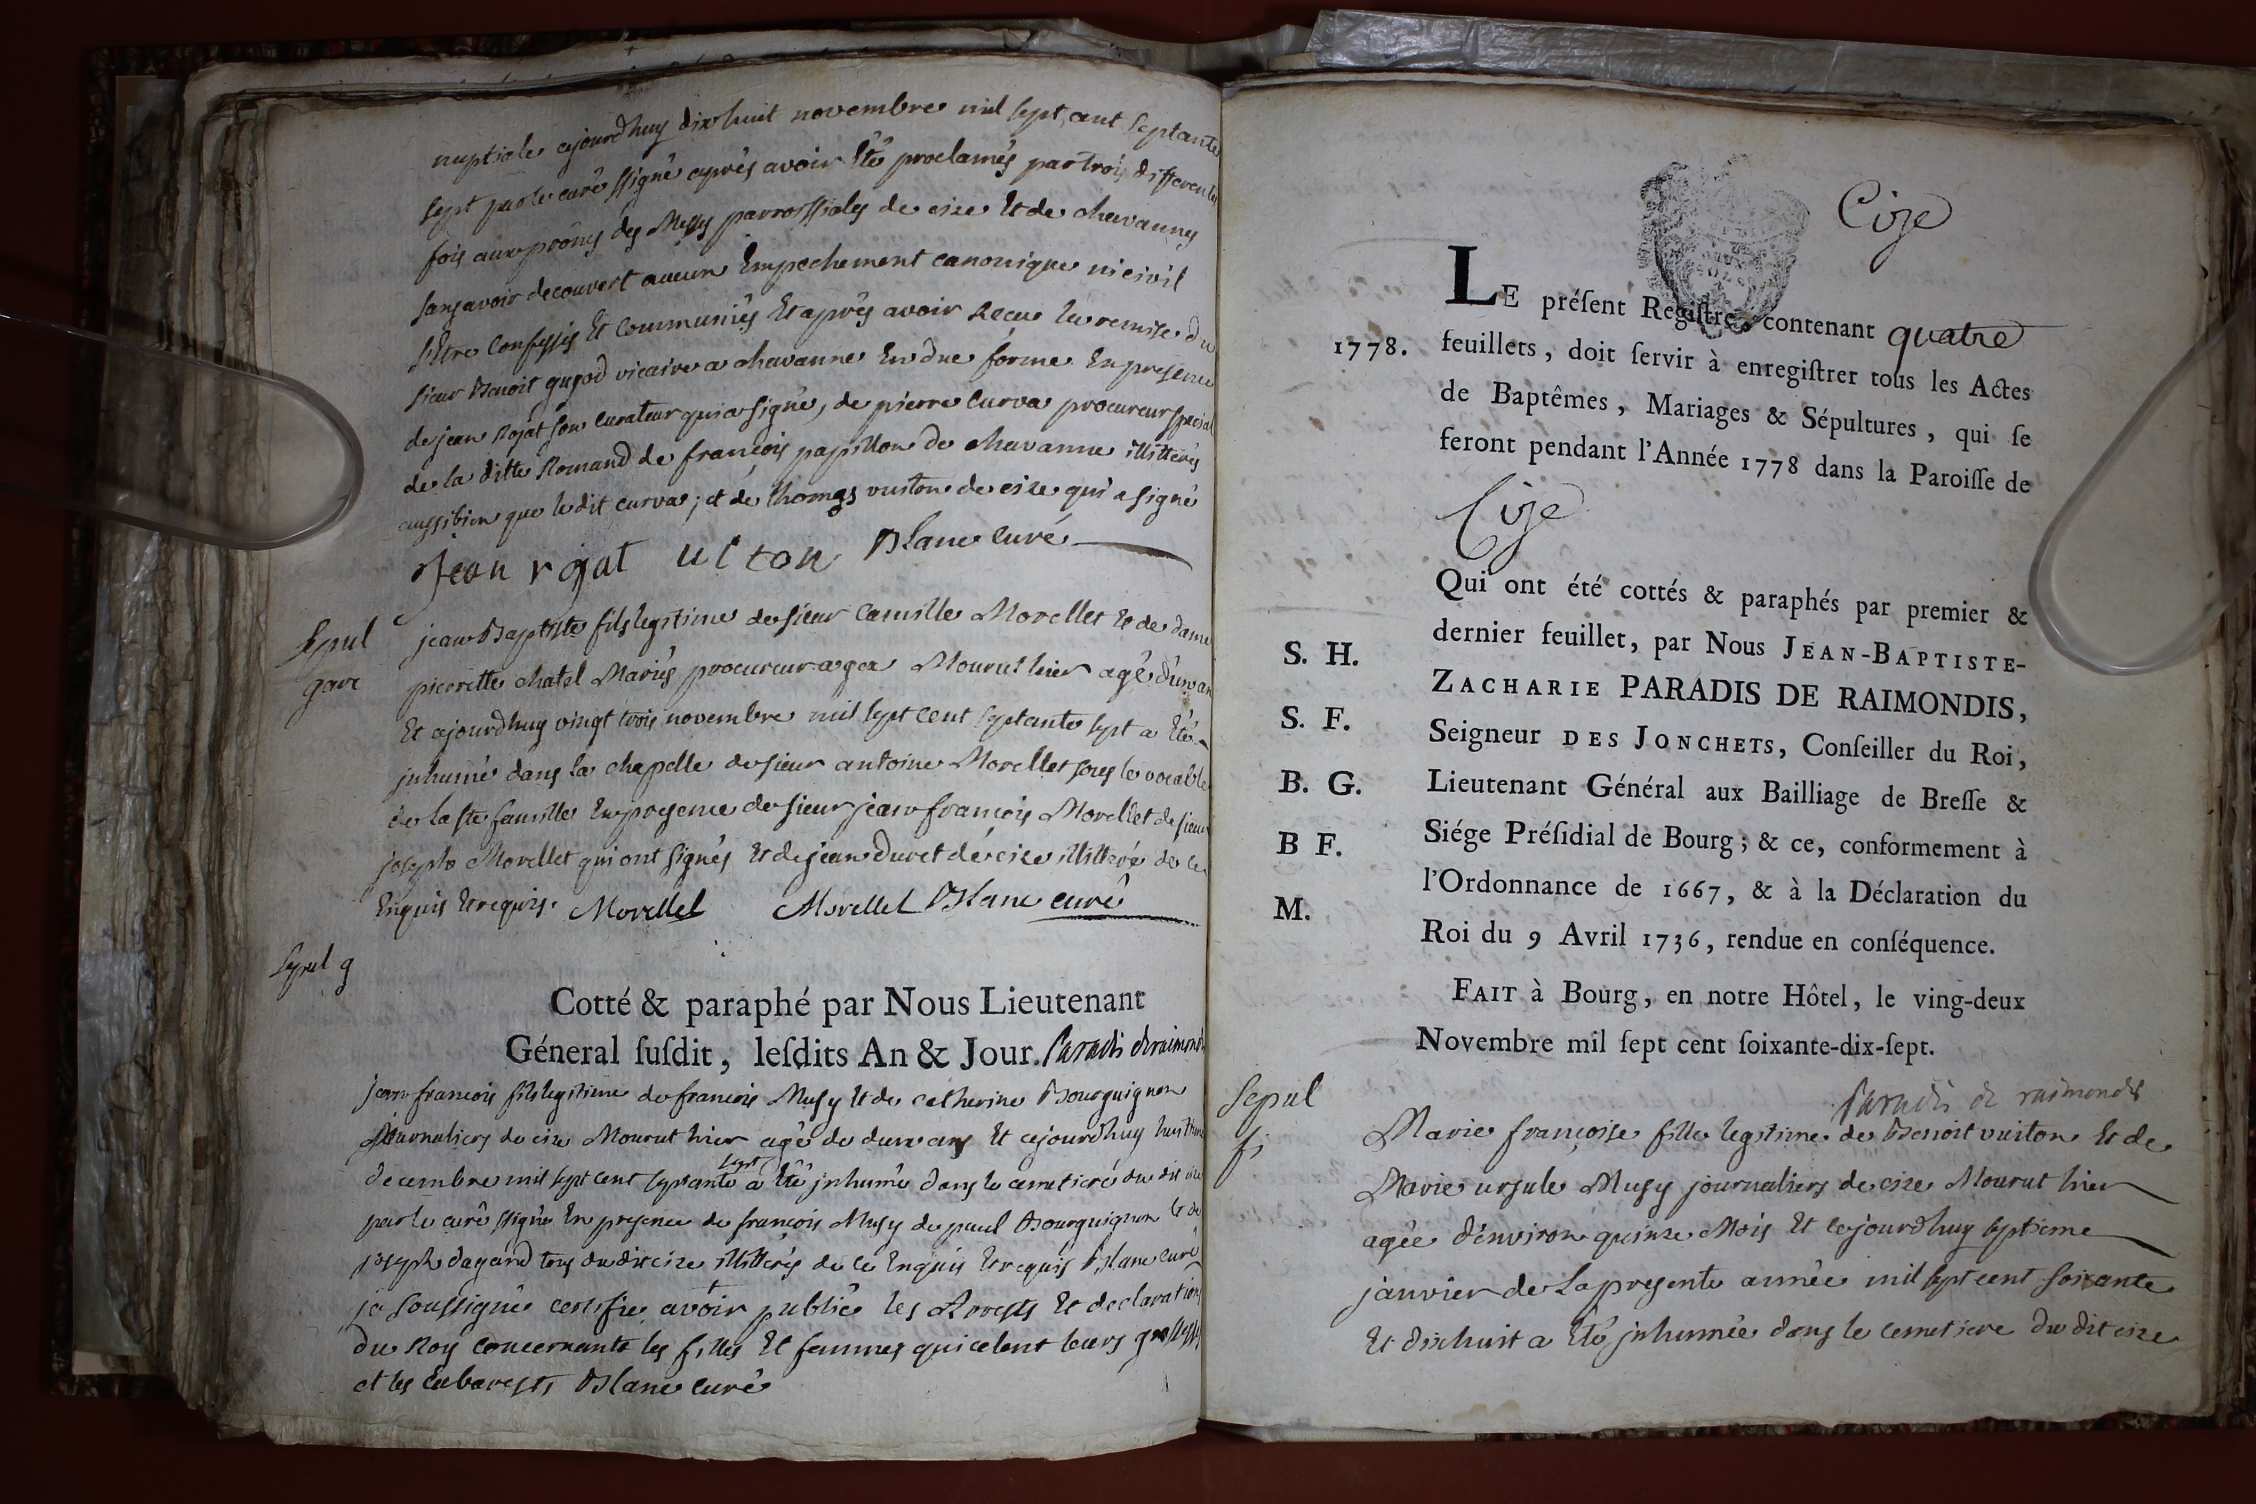 nuptiale cejourdhuy dixhuit novembre mil sept cent septante
sept par le curé ssigné après avoir été proclamés par trois differentes
fois aux prônes des Messes parroissiales de cize et de chavannes
sans avoir decouvert aucun Empechement canonique ni civil
s'être confessés et communiés et après avoir Reçu la remise du
sieur Benoit gugod vicaire a chavanne En due forme En presence
de jean Rojat son curateur qui a signé, de pierre Curva procureur special
de la ditte Romand de françois papillon de chavanne illitterés
aussibien que ledit curva; et de thomas vuiton de cize qui a signé
Jean rojat uiton Blanc curé
Sepul
garc
jean Baptiste fils legitime de sieur Camille Morellet et de dame
pierrette chatel Mariés procureur a gex Mourut hier agé d'un an
Et cejourdhuy vingt trois novembre mil sept cent septante sept a été
jnhumé dans la chapelle de sieur antoine Morellet sous le vocable
de la ste famille En presence de sieur jean françois Morellet de sieur
joseph Morellet qui ont signés Et de jean duret de cize illitteré de ce
Enquis Et requis. Morellet Morellet Blanc curé
Sepul g
Cotté & paraphé par Nous Lieutenant
Géneral ſuſdit, leſdits An & Jour. Paradis de raimondis
jean francois fils legitime de francois Musy et de catherine Bourguignon
Journaliers de cize Mourut hier agé de deux ans Et cejourdhuy huitieme
decembre mil sept cent septante sept a été jnhumé dans le cemetiere du dit cize
par le curé ssigné En presence de françois Musy de paul Bourguignon et de
joseph dagand tous du dit cize illitterés de ce Enquis Et requis Blanc curé
je soussigné certifie avoir publié les Arrests Et declarations
du Roy concernants les filles Et femmes qui celent leurs grossesses
et les Cabarests Blanc curé
Cize
LE préſent Regiſtre, contenant quatre
1778. feuillets, doit ſervir à enregiſtrer tous les Actes
de Baptêmes, Mariages & Sépultures, qui ſe
feront pendant l'Année 1778 dans la Paroiſſe de
Cize
Qui ont été cottés & paraphés par premier &
dernier feuillet, par Nous JEAN-BAPTISTE-
S. H.
ZACHARIE PARADIS DE RAIMONDIS,
S. F.
Seigneur DES JONCHETS, Conſeiller du Roi,
B. G.
Lieutenant Général aux Bailliage de Breſſe &
B F.
Siége Préſidial de Bourg; & ce, conformement à
l'Ordonnance de 1667, & à la Déclaration du
M.
Roi du 9 Avril 1736, rendue en conſéquence.
FAIT à Bourg, en notre Hôtel, le ving-deux
Novembre mil ſept cent ſoixante-dix-ſept.
Paradis de raimondis
Sepul
fi
Marie françoise fille legitime de Benoit vuiton Et de
Marie ursule Musy journaliers de cize Mourut hier
agée d'environ quinze Mois Et cejourdhuy septieme
janvier de la presente année mil sept cent soixante
Et dixhuit a été jnhumée dans le cemetiere du dit cize